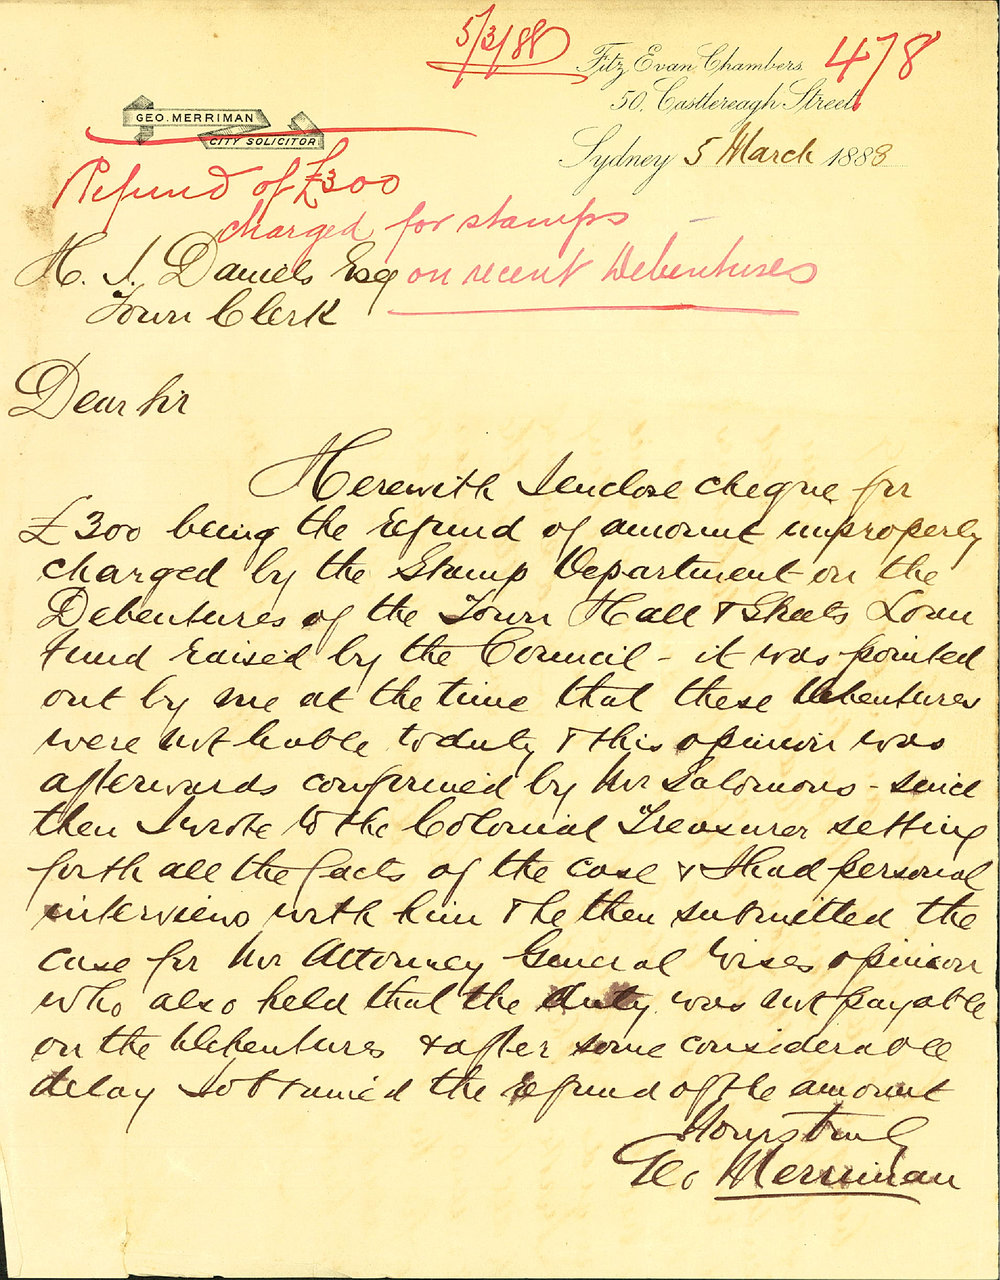 5/3/88
Fitz Evan Chambers
478
50, Castlereagh Street,
GEO. MERRIMAN
CITY SOLICITOR
Sydney 5 March 1888
Refund of £300
charged for stamps
on recent Debentures
H. J. Daniels Esq
Town Clerk
Dear Sir
Herewith I enclose cheque for
£300 being the refund of amount improperly
charged by the Stamp Department on the
Debentures of the Town Hall & Streets Loan
Fund raised by the Council - it was pointed
out by me at the time that these Debentures
were not liable to duty & this opinion was
afterwards confirmed by Mr Salomons - since
then I wrote to the Colonial Treasurer setting
forth all the facts of the case & I had personal
interviews with him & he then submitted the
case for Mr Attorney General Wises opinion
who also held that the duty was not payable
on the Debentures & after some considerable
delay I obtained the refund of the amount
Yours truly
Geo Merriman